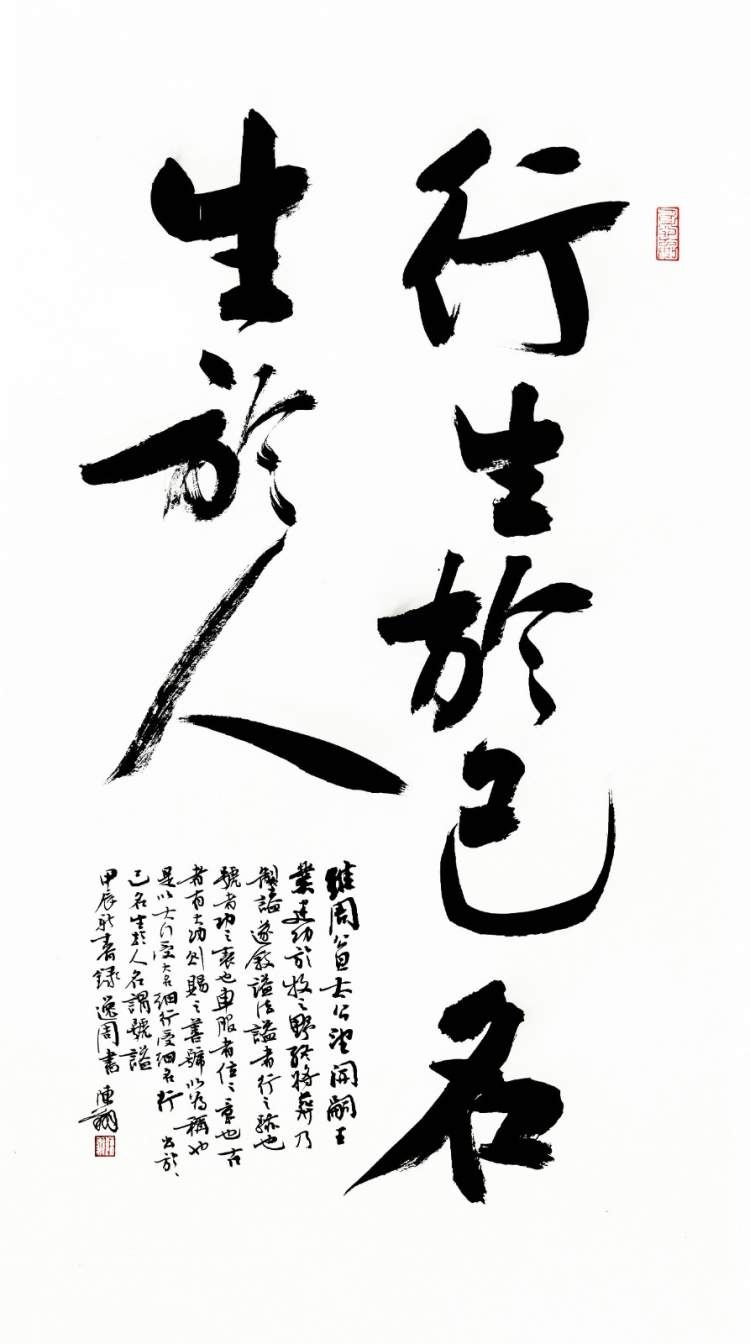 行生於己名
生於人
維周公旦太公望開嗣王
業建功於牧之野終將葬乃
製謚遂敘謚法謚者行之跡也
號者功之表也車服者位之章也古
者有大功則賜之善號以為稱也
是以大行受大名細行受細名行出於
己名生於人名謂號謚
甲辰新春錄逸周書 陳翔